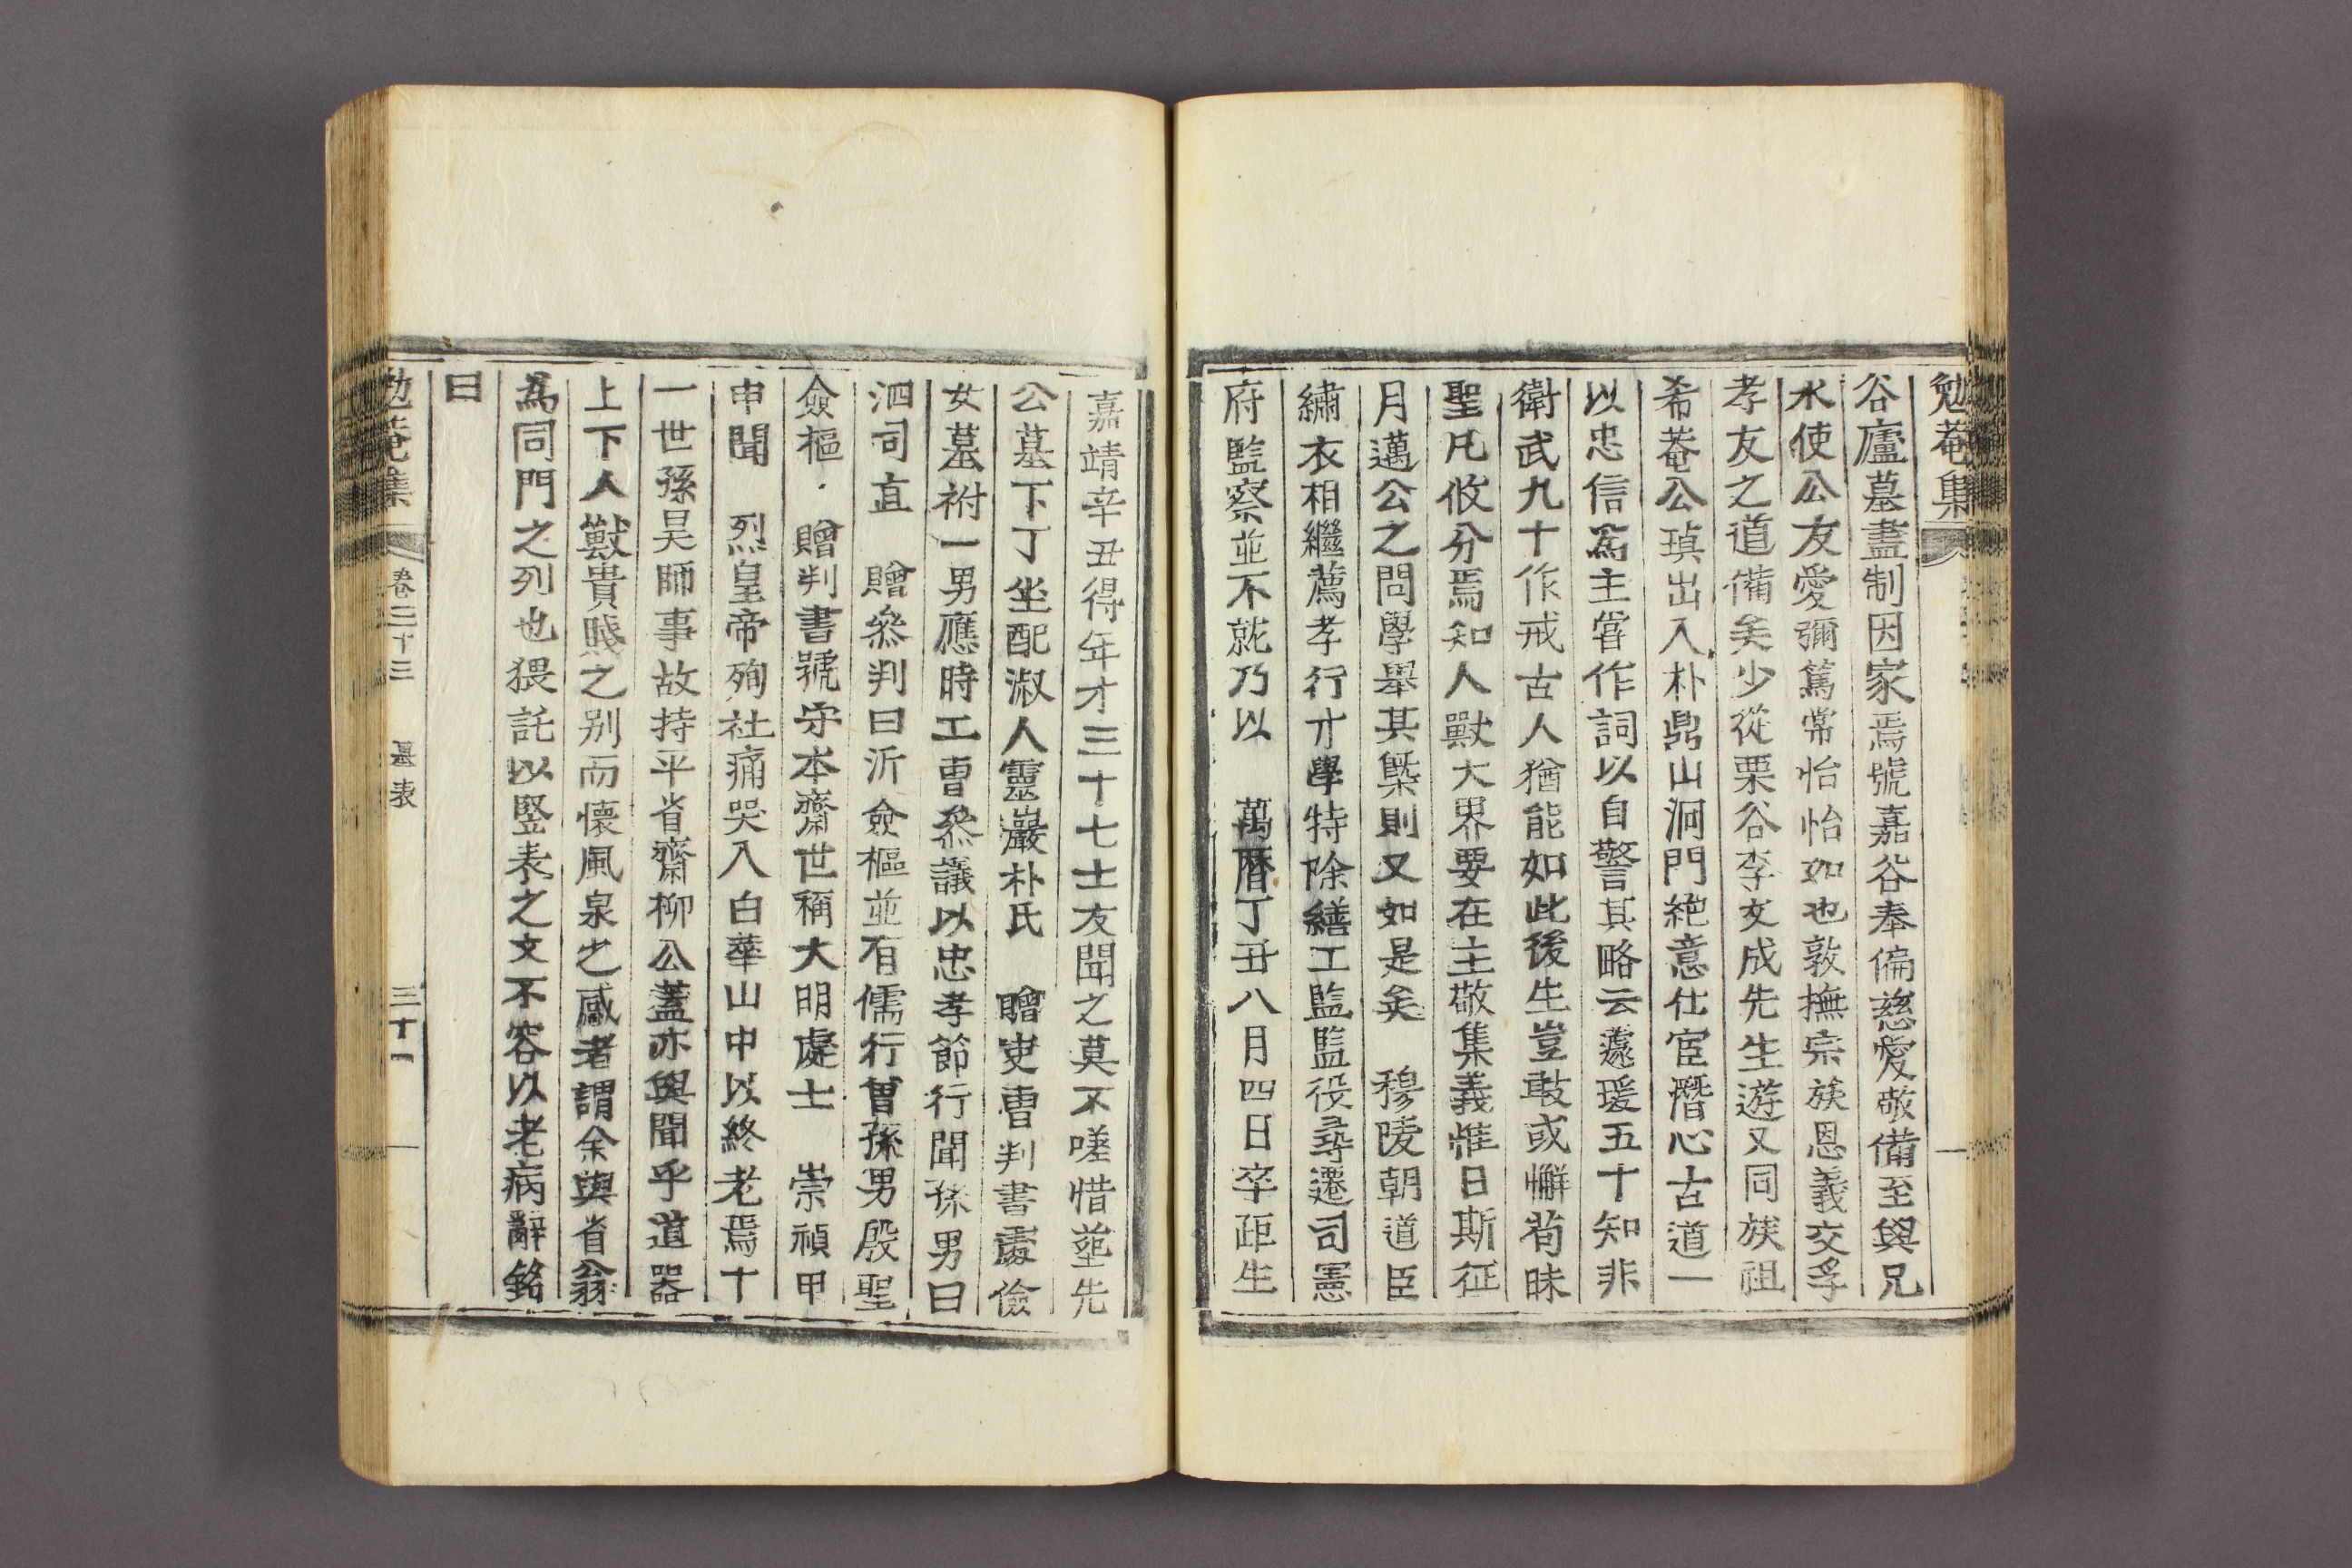 勉菴集
谷廬墓盡制因家焉號嘉谷奉偏慈愛敬備至與兄
水使公友愛彌篤常怡怡如也敦撫宗族恩義交孚
孝友之道備矣少從栗谷李文成先生遊又同族祖
希菴公瑱出入朴鼎山洞門絶意仕宦潛心古道一
以忠信爲主嘗作詞以自警其略云蘧瑗五十知非
衛武九十作戒古人猶能如此後生豈敢或懈苟昧
聖凡攸分焉知人獸大界要在主敬集義惟日斯征
月邁公之問學擧其槩則又如是矣 穆陵朝道臣
繡衣相繼薦孝行才學特除繕工監監役尋遷司憲
府監察並不就乃以 萬曆丁丑八月四日卒距生
嘉靖辛丑得年才三十七士友聞之莫不嗟惜塟先
公墓下丁坐配淑人靈巖朴氏 贈吏曹判書處儉
女墓祔一男應時工曹叅議以忠孝節行聞孫男曰
泗司直 贈叅判曰沂僉樞並有儒行曾孫男殷聖
僉樞 贈判書號守本齋世稱大明處士 崇禎甲
申聞 烈皇帝殉社痛哭入白華山中以終老焉十
一世孫昊師事故持平省齋柳公蓋亦與聞乎道器
上下人獸貴賤之别而懷風泉之感者謂余與省翁
爲同門之列也猥託以竪表之文不容以老病辭銘
曰
勉菴集 卷三十三 墓表 三十一